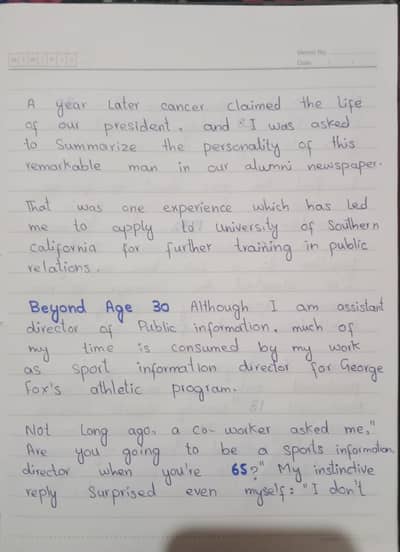 Date
A year later cancer claimed the life
of our president, and "I was asked
to Summarize the personality of this
remarkable man in our alumni newspaper.
That was one experience which has led
me to apply to University of Southern
california for further training in public
relations.
Beyond Age 30 Although I am assistant
director of Public information, much of
my time is consumed by my work
as sport information director for George
Fox's athletic program.
Not long ago, a co-worker asked me,"
Are you going to be a sports information
director when you're 65?" My instinctive
reply Surprised even myself: "I don't